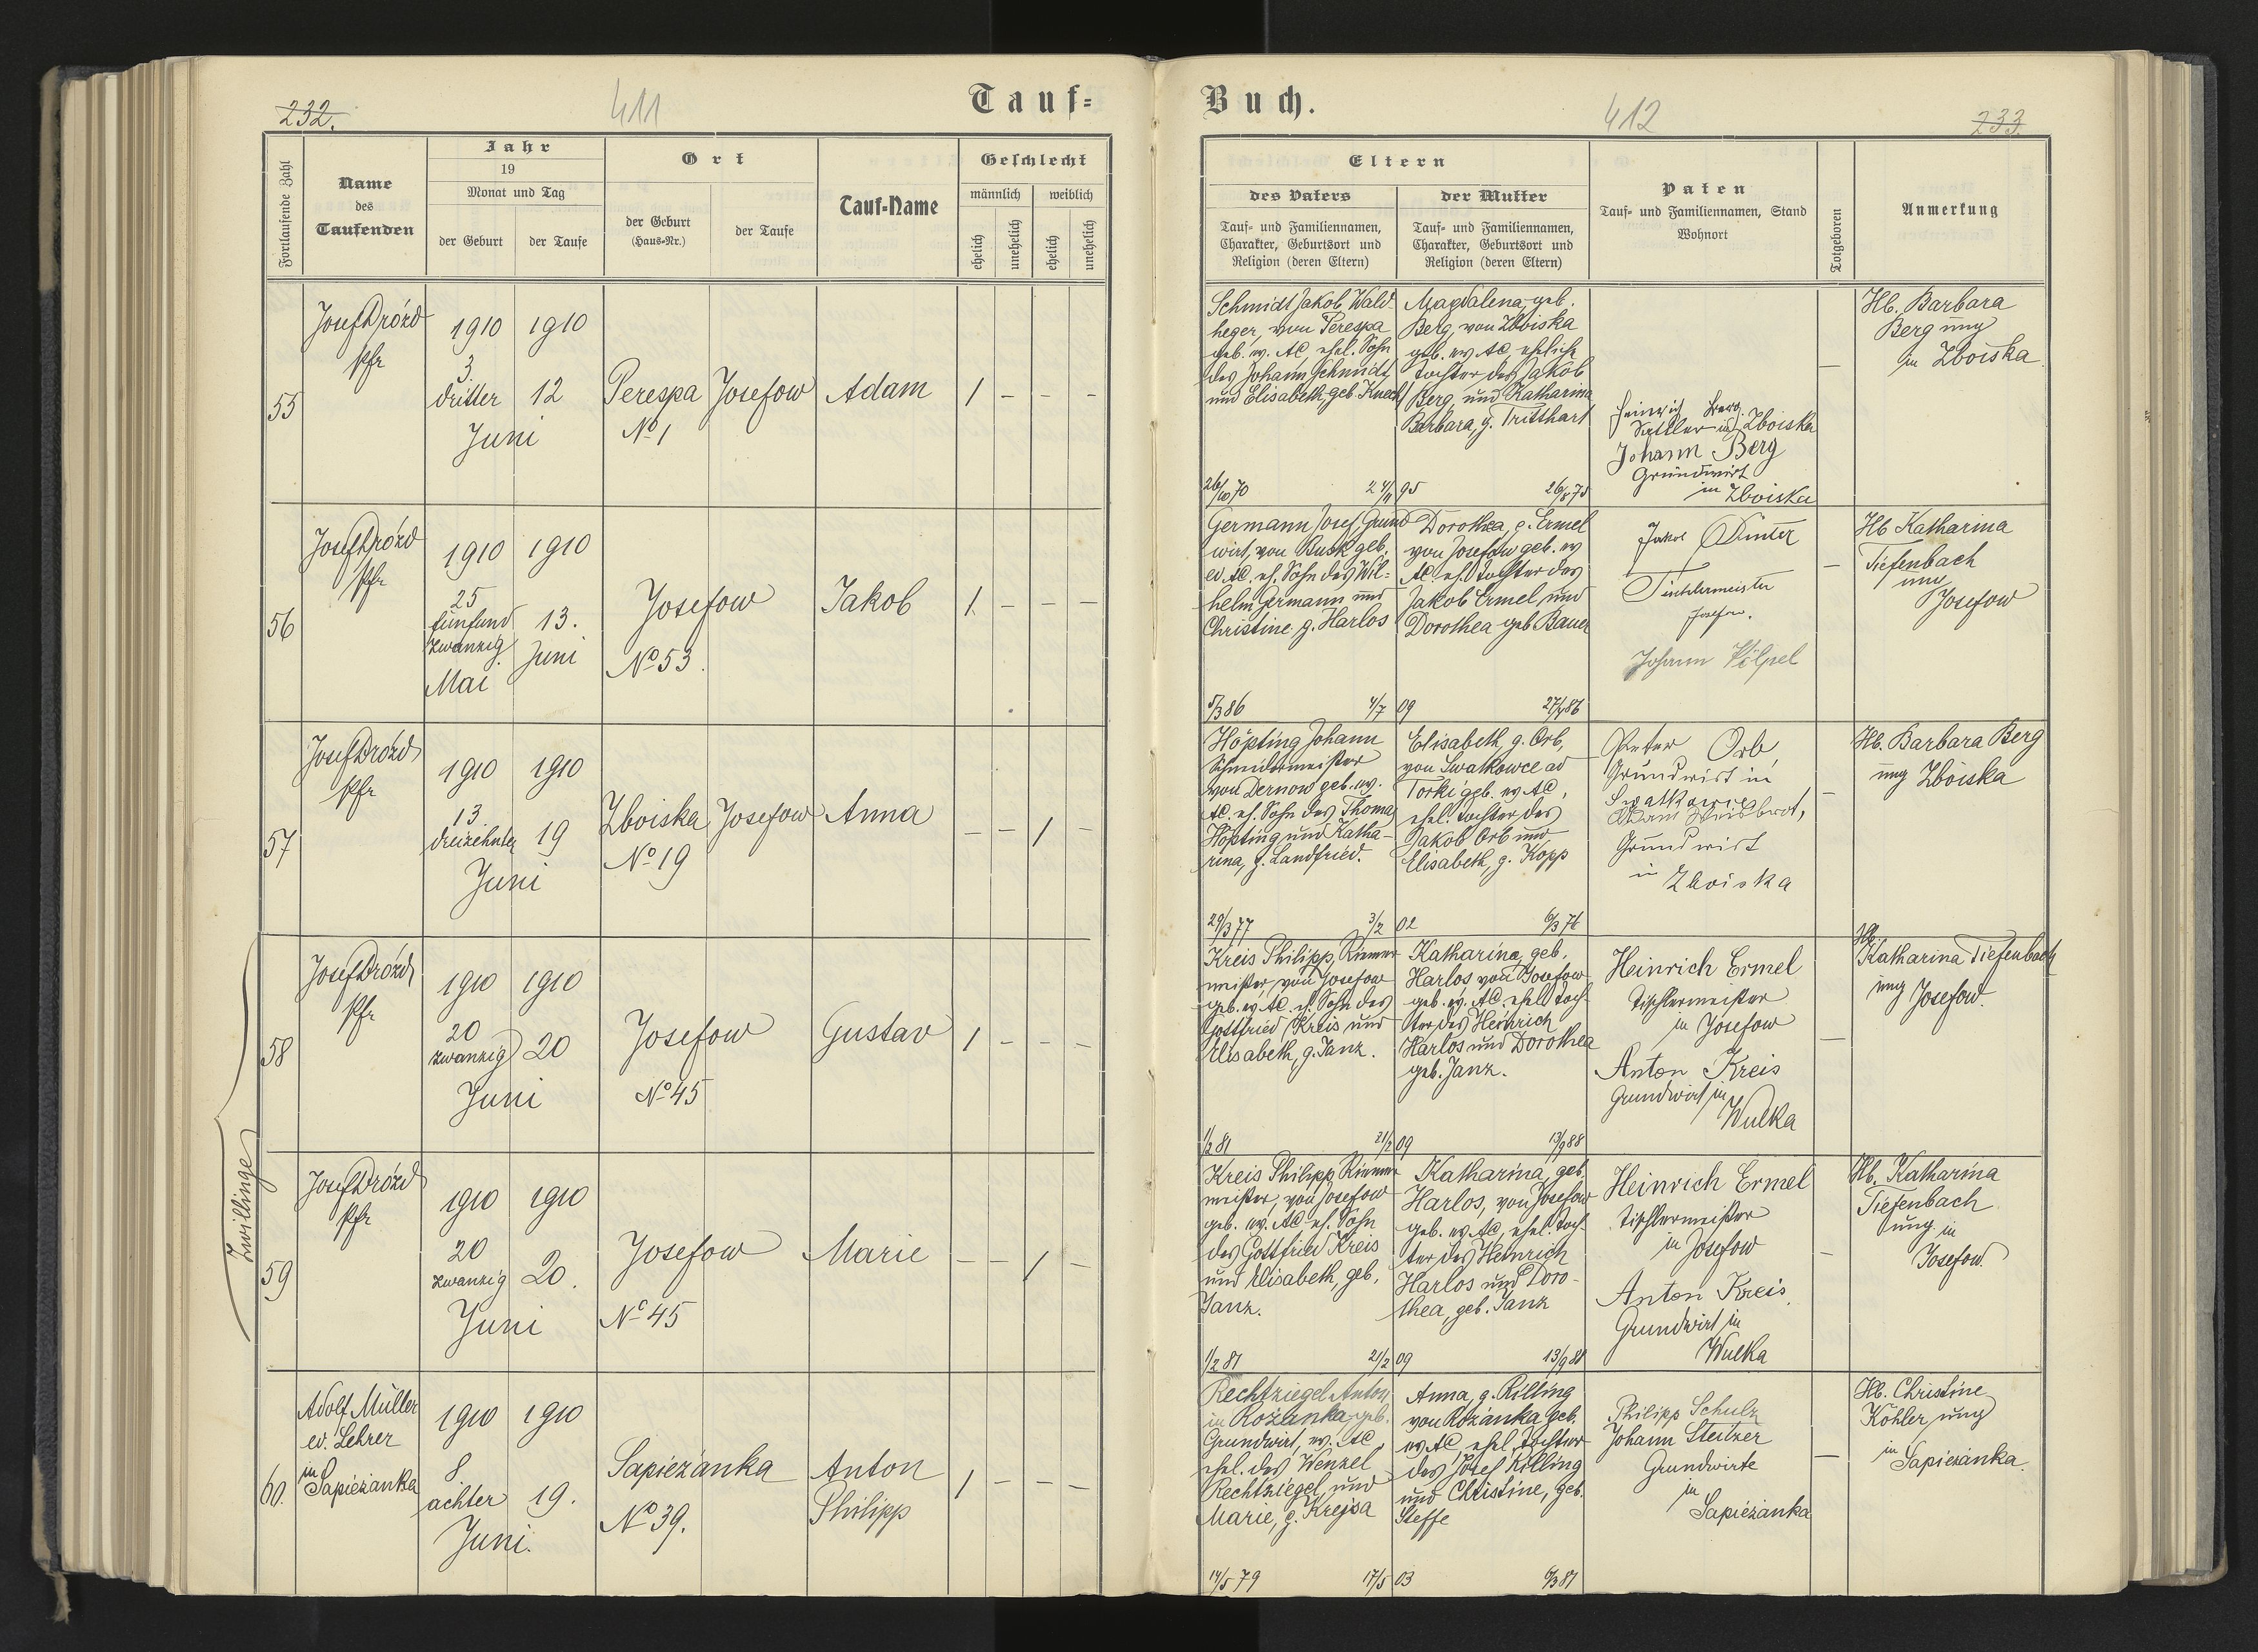 232.
411
Tauf=
Fortlaufende Zahl
Name
des
Taufenden
Jahr
19
Monat und Tag
der Geburt
der Taufe
Ort
der Geburt
(Haus-Nr.)
der Taufe
Tauf-Name
Geschlecht
männlich
weiblich
ehelich
unehelich
ehelich
unehelich
55
Josef Drózd
Pfr
1910
3
dritter
Juni
1910
12
Perespa
No 1
Josefow
Adam
1 - - -
56
Josef Drózd
Pfr
1910
25
fünfund
zwanzig
Mai
1910
13.
Juni
Josefow
No 53.
Jakob
1. - - -
57
Josef Drózd
Pfr
1910
13.
dreizehnter
Juni
1910
19
Zboiska
No 19
Josefow
Anna
- - 1 -
Zwillinge
58
Josef Drózd
Pfr
1910
20
zwanzig
Juni
1910
20
Josefow
No 45
Gustav
1 - - -
59
Josef Drózd
Pfr
1910
20
zwanzig
Juni
1910
20.
Josefow
No 45
Marie
- - 1 -
60.
Adolf Müller
ev. Lehrer
in
Sapieżanka
1910
8
achter
Juni.
1910
19.
Sapieżanka
No 39.
Anton
Philipp
1 - - -
Buch.
412
233.
Eltern
des Vaters
Tauf- und Familiennamen,
Charakter, Geburtsort und
Religion (deren Eltern)
der Mutter
Tauf- und Familiennamen,
Charakter, Geburtsort und
Religion (deren Eltern)
Paten
Tauf- und Familiennamen, Stand
Wohnort
Totgeboren
Anmerkung
Schmidt Jakob, Wald-
heger, von Perespa
geb. ev. AC, ehel. Sohn
des Johann Schmidt
und Elisabeth, geb. Knecht
26/10 70
24/11 95
Magdalena, geb.
Berg, von Zboiska
geb. ev AC, ehelich
Tochter des Jakob
Berg, und Katharina
Barbara, g. Tritthart
26/8 75
Heinrich Berg.
Sattler in Zboiska
Johann Berg
Grundwirt
in Zboiska
-
Hb. Barbara
Berg ung
in Zboiska
Germann Josef, Grund
wirt, von Busk geb.
ev. AC. eh. Sohn des Wil=
helm Germann und
Christine g. Harlos
5/3 86
4/7 09
Dorothea, g. Ermel
von Josefow geb. ev
AC. eh. Tochter des
Jakob Ermel und
Dorothea geb Bauer
Jakob Dinter
Tischlermeister
Josefow.
Johann Völpel
-
Hb Katharina
Tiefenbach
ung
Josefow
Höpting Johann
Schmiedemeister
von Dernow geb. ev.
AC. eh. Sohn des Thomas
Höpting und Katha-
rina, g. Landfried.
29/3 77
3/2 02
Elisabeth, g. Orb,
von Swatkowce ad
Torki geb. ev AC,
ehel. Tochter des
Jakob Orb und
Elisabeth, g. Kopp
6/3 76
Peter Orb
Grundwirt in
Grundwirt
in Zboiska
-
Hb. Barbara Berg
ung Zboiska
Kreis Philipp, Riemer
meister, von Josefow
geb. ev. AC. eh. Sohn des
Gottfried Kreis und
Elisabeth, g. Janz.
1/2 81
21/2 09
Katharina, geb.
Harlos von Josefow
geb. ev. AC, ehel Toch-
ter des Heinrich
Harlos und Dorothea
geb. Janz.
13/9 88
Heinrich Ermel
Tischlermeister
in Josefow
Anton Kreis
Grundwirt in
Wulka
-
Hb.
Katharina Tiefenbach
ung Josefow.
Kreis Philipp, Riemer
meister, von Josefow
geb. ev. AC eh. Sohn
des Gottfried Kreis
und Elisabeth, geb.
Janz.
1/2 81
21/2 09
Katharina, geb
Harlos, von Josefow
geb. ev. AC, ehel. Toch-
ter des Heinrich
Harlos und Doro-
thea, geb. Janz
13/9 88
Heinrich Ermel
Tischlermeister
in Josefow
Anton Kreis
Grundwirt in
Wulka
-
Hb. Katharina
Tiefenbach
ung. in
Josefow.
Rechtziegel Anton,
in Rożanka, geb.
Grundwirt, ev. AC,
ehel. des Wenzel
Rechtziegel, und
Marie, g. Krejsa
14/5 79
17/5 03
Anna, g. Rilling
von Rożanka geb.
ev AC, ehel Tochter
des Josef Rilling
und Christine, geb.
Steffe
6/3 81
Philipp Schulz
Johann Steitzer
Grundwirte
in
Sapieżanka
-
Hb. Christine
Köhler ung
in
Sapieżanka.